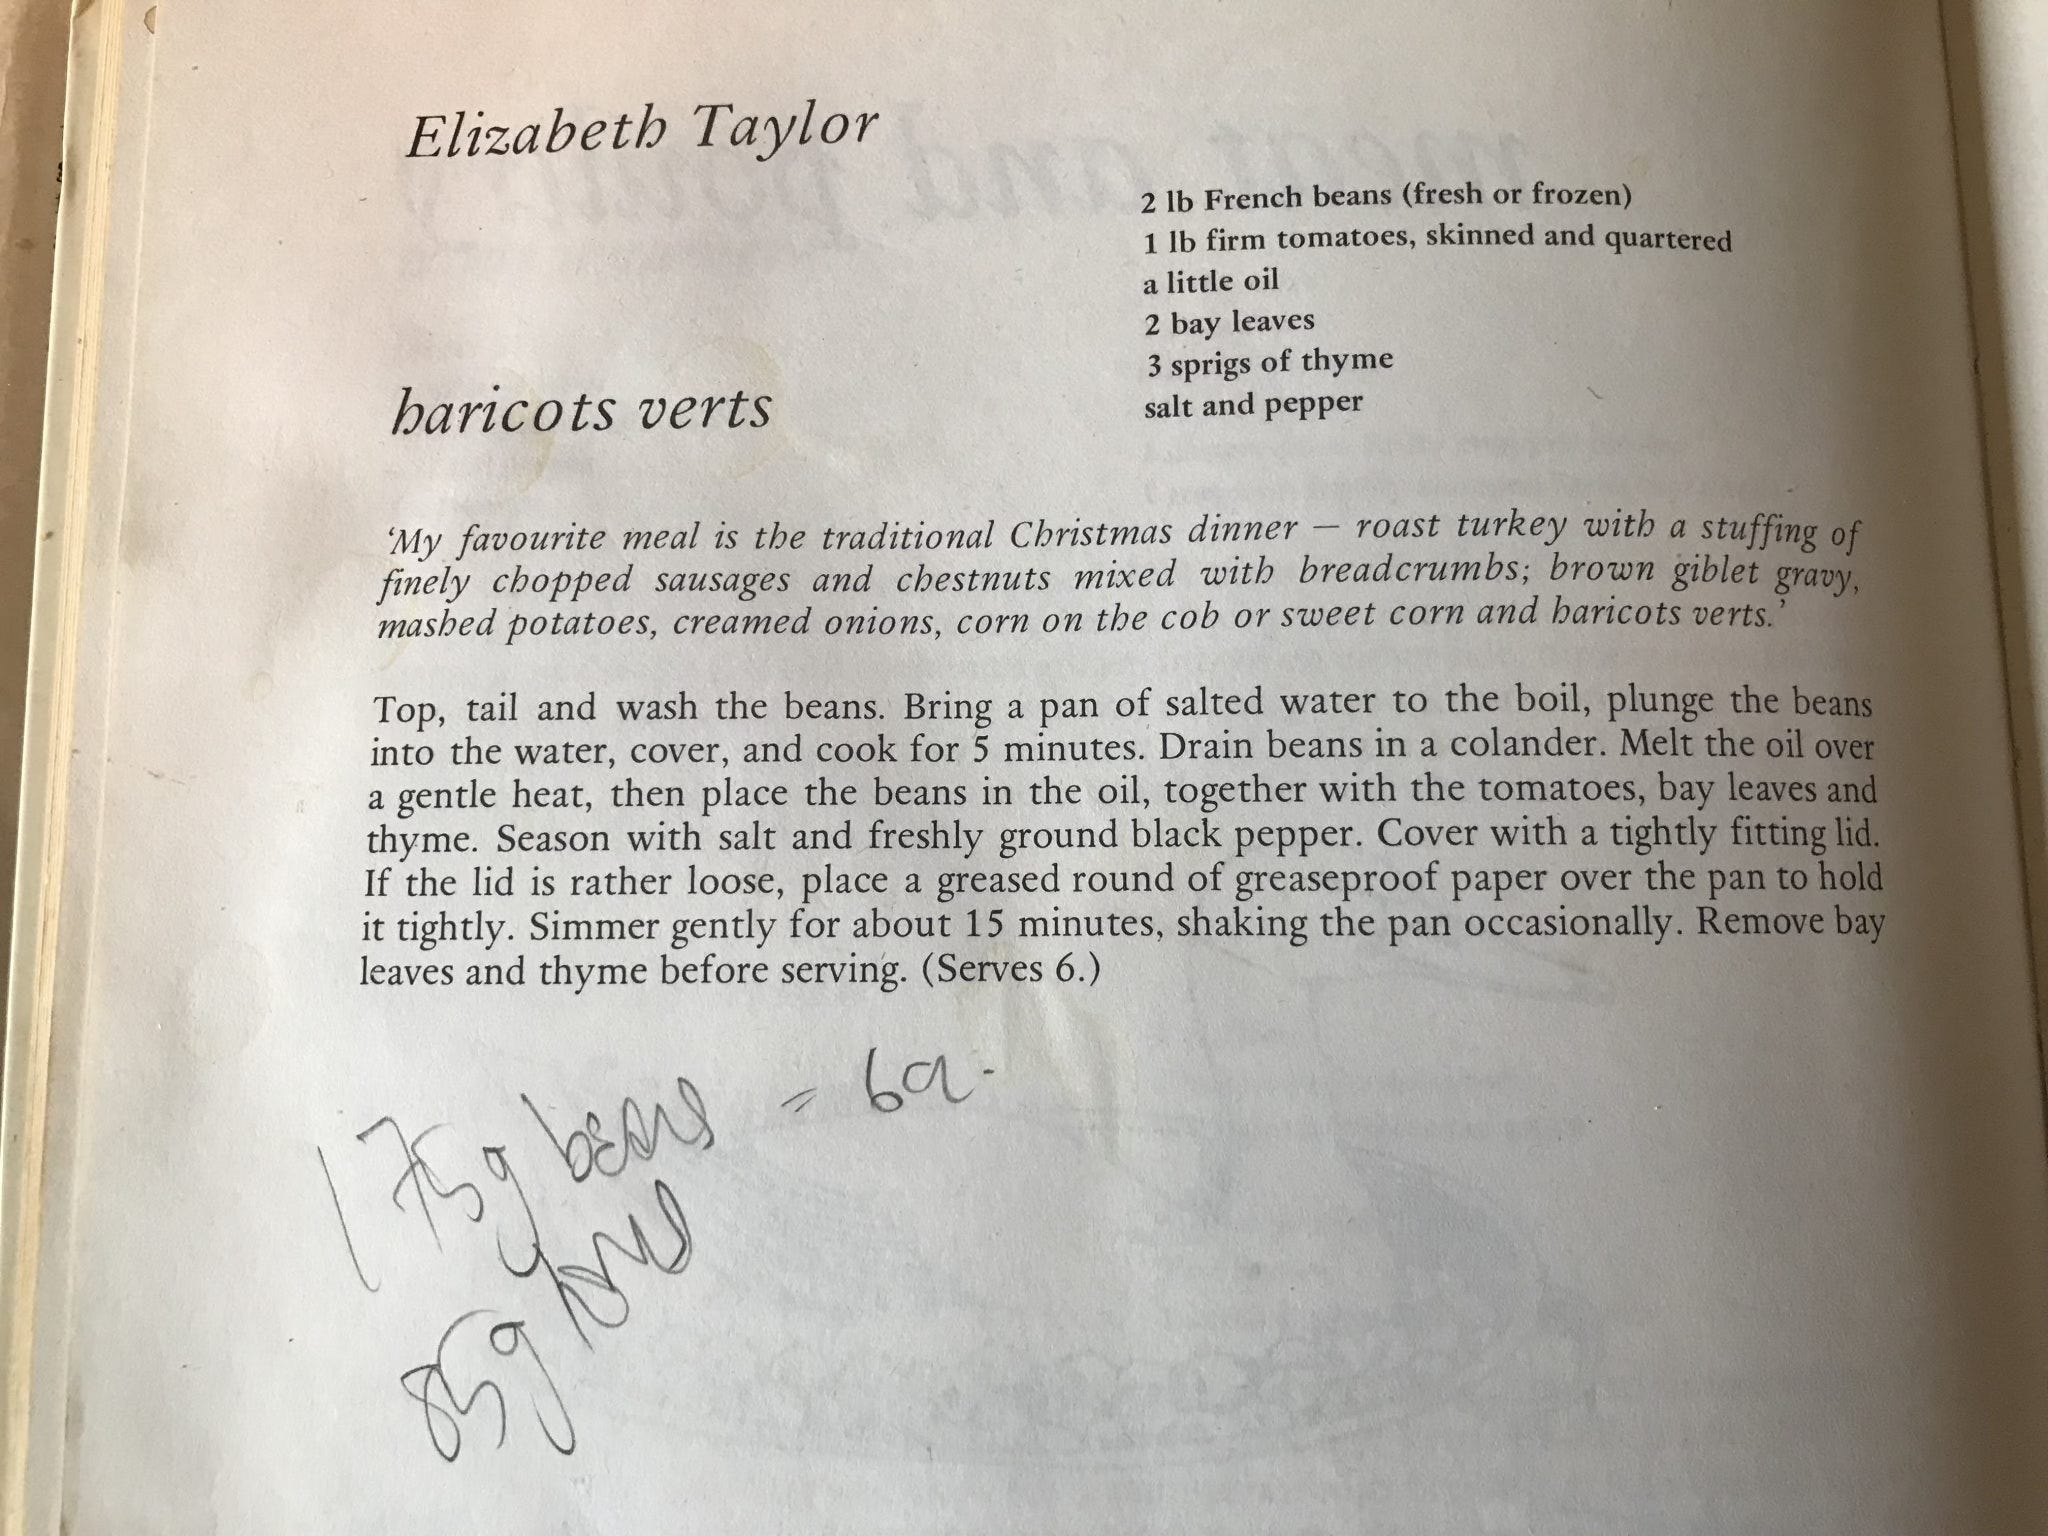 Elizabeth Taylor
2 lb French beans (fresh or frozen)
1 lb firm tomatoes, skinned and quartered
a little oil
2 bay leaves
3 sprigs of thyme
salt and pepper
haricots verts
‘My favourite meal is the traditional Christmas dinner — roast turkey with a stuffing of
finely chopped sausages and chestnuts mixed with breadcrumbs; brown giblet gravy,
mashed potatoes, creamed onions, corn on the cob or sweet corn and haricots verts.’
Top, tail and wash the beans. Bring a pan of salted water to the boil, plunge the beans
into the water, cover, and cook for 5 minutes. Drain beans in a colander. Melt the oil over
a gentle heat, then place the beans in the oil, together with the tomatoes, bay leaves and
thyme. Season with salt and freshly ground black pepper. Cover with a tightly fitting lid.
If the lid is rather loose, place a greased round of greaseproof paper over the pan to hold
it tightly. Simmer gently for about 15 minutes, shaking the pan occasionally. Remove bay
leaves and thyme before serving. (Serves 6.)
175g beans =
85g